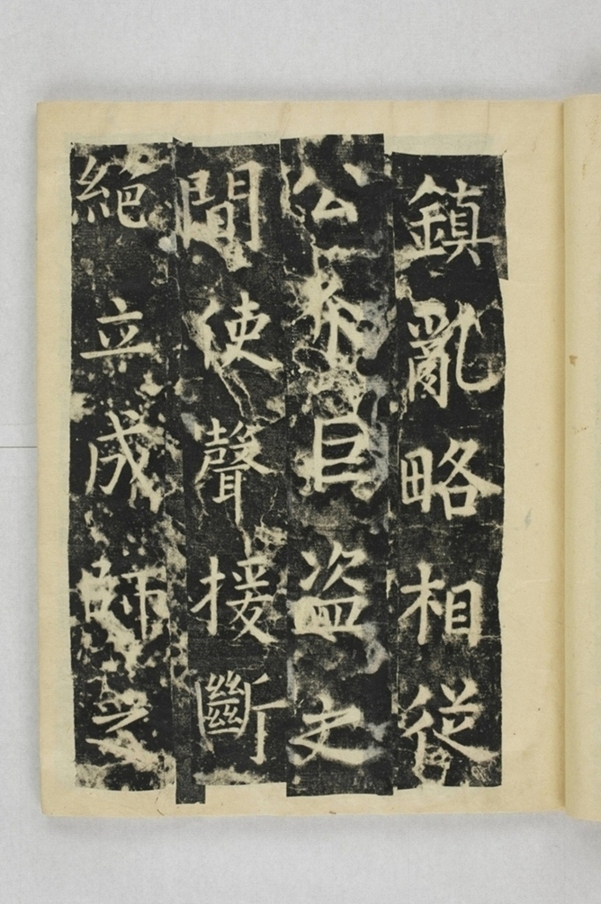 鎮亂略相從
公不目盜之
間使聲接斷
絕立成師之